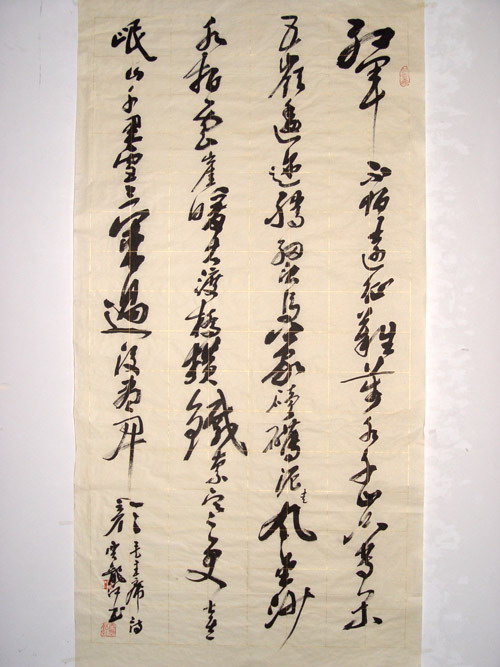 紅軍不怕遠征難萬水千山只等闲
五嶺逶迤騰細浪烏蒙磅礴走泥丸金沙
水拍雲崖暖大渡橋横鐵索寒更喜
岷山千里雪三軍過後尽開颜
毛主席詩